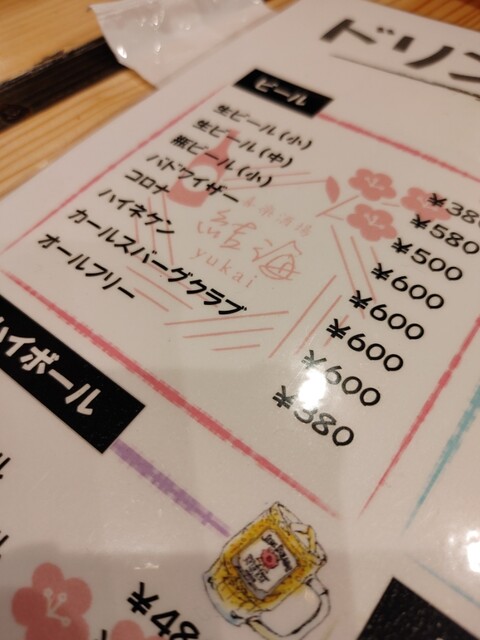 ドリン
ビール
生ビール(小) ¥380
生ビール(中) ¥580
瓶ビール(小) ¥500
バドワイザー ¥600
コロナ ¥600
ハイネケン ¥600
カールスバーグクラブ ¥600
オールフリー ¥380
結海
yukai
ハイボール
¥48